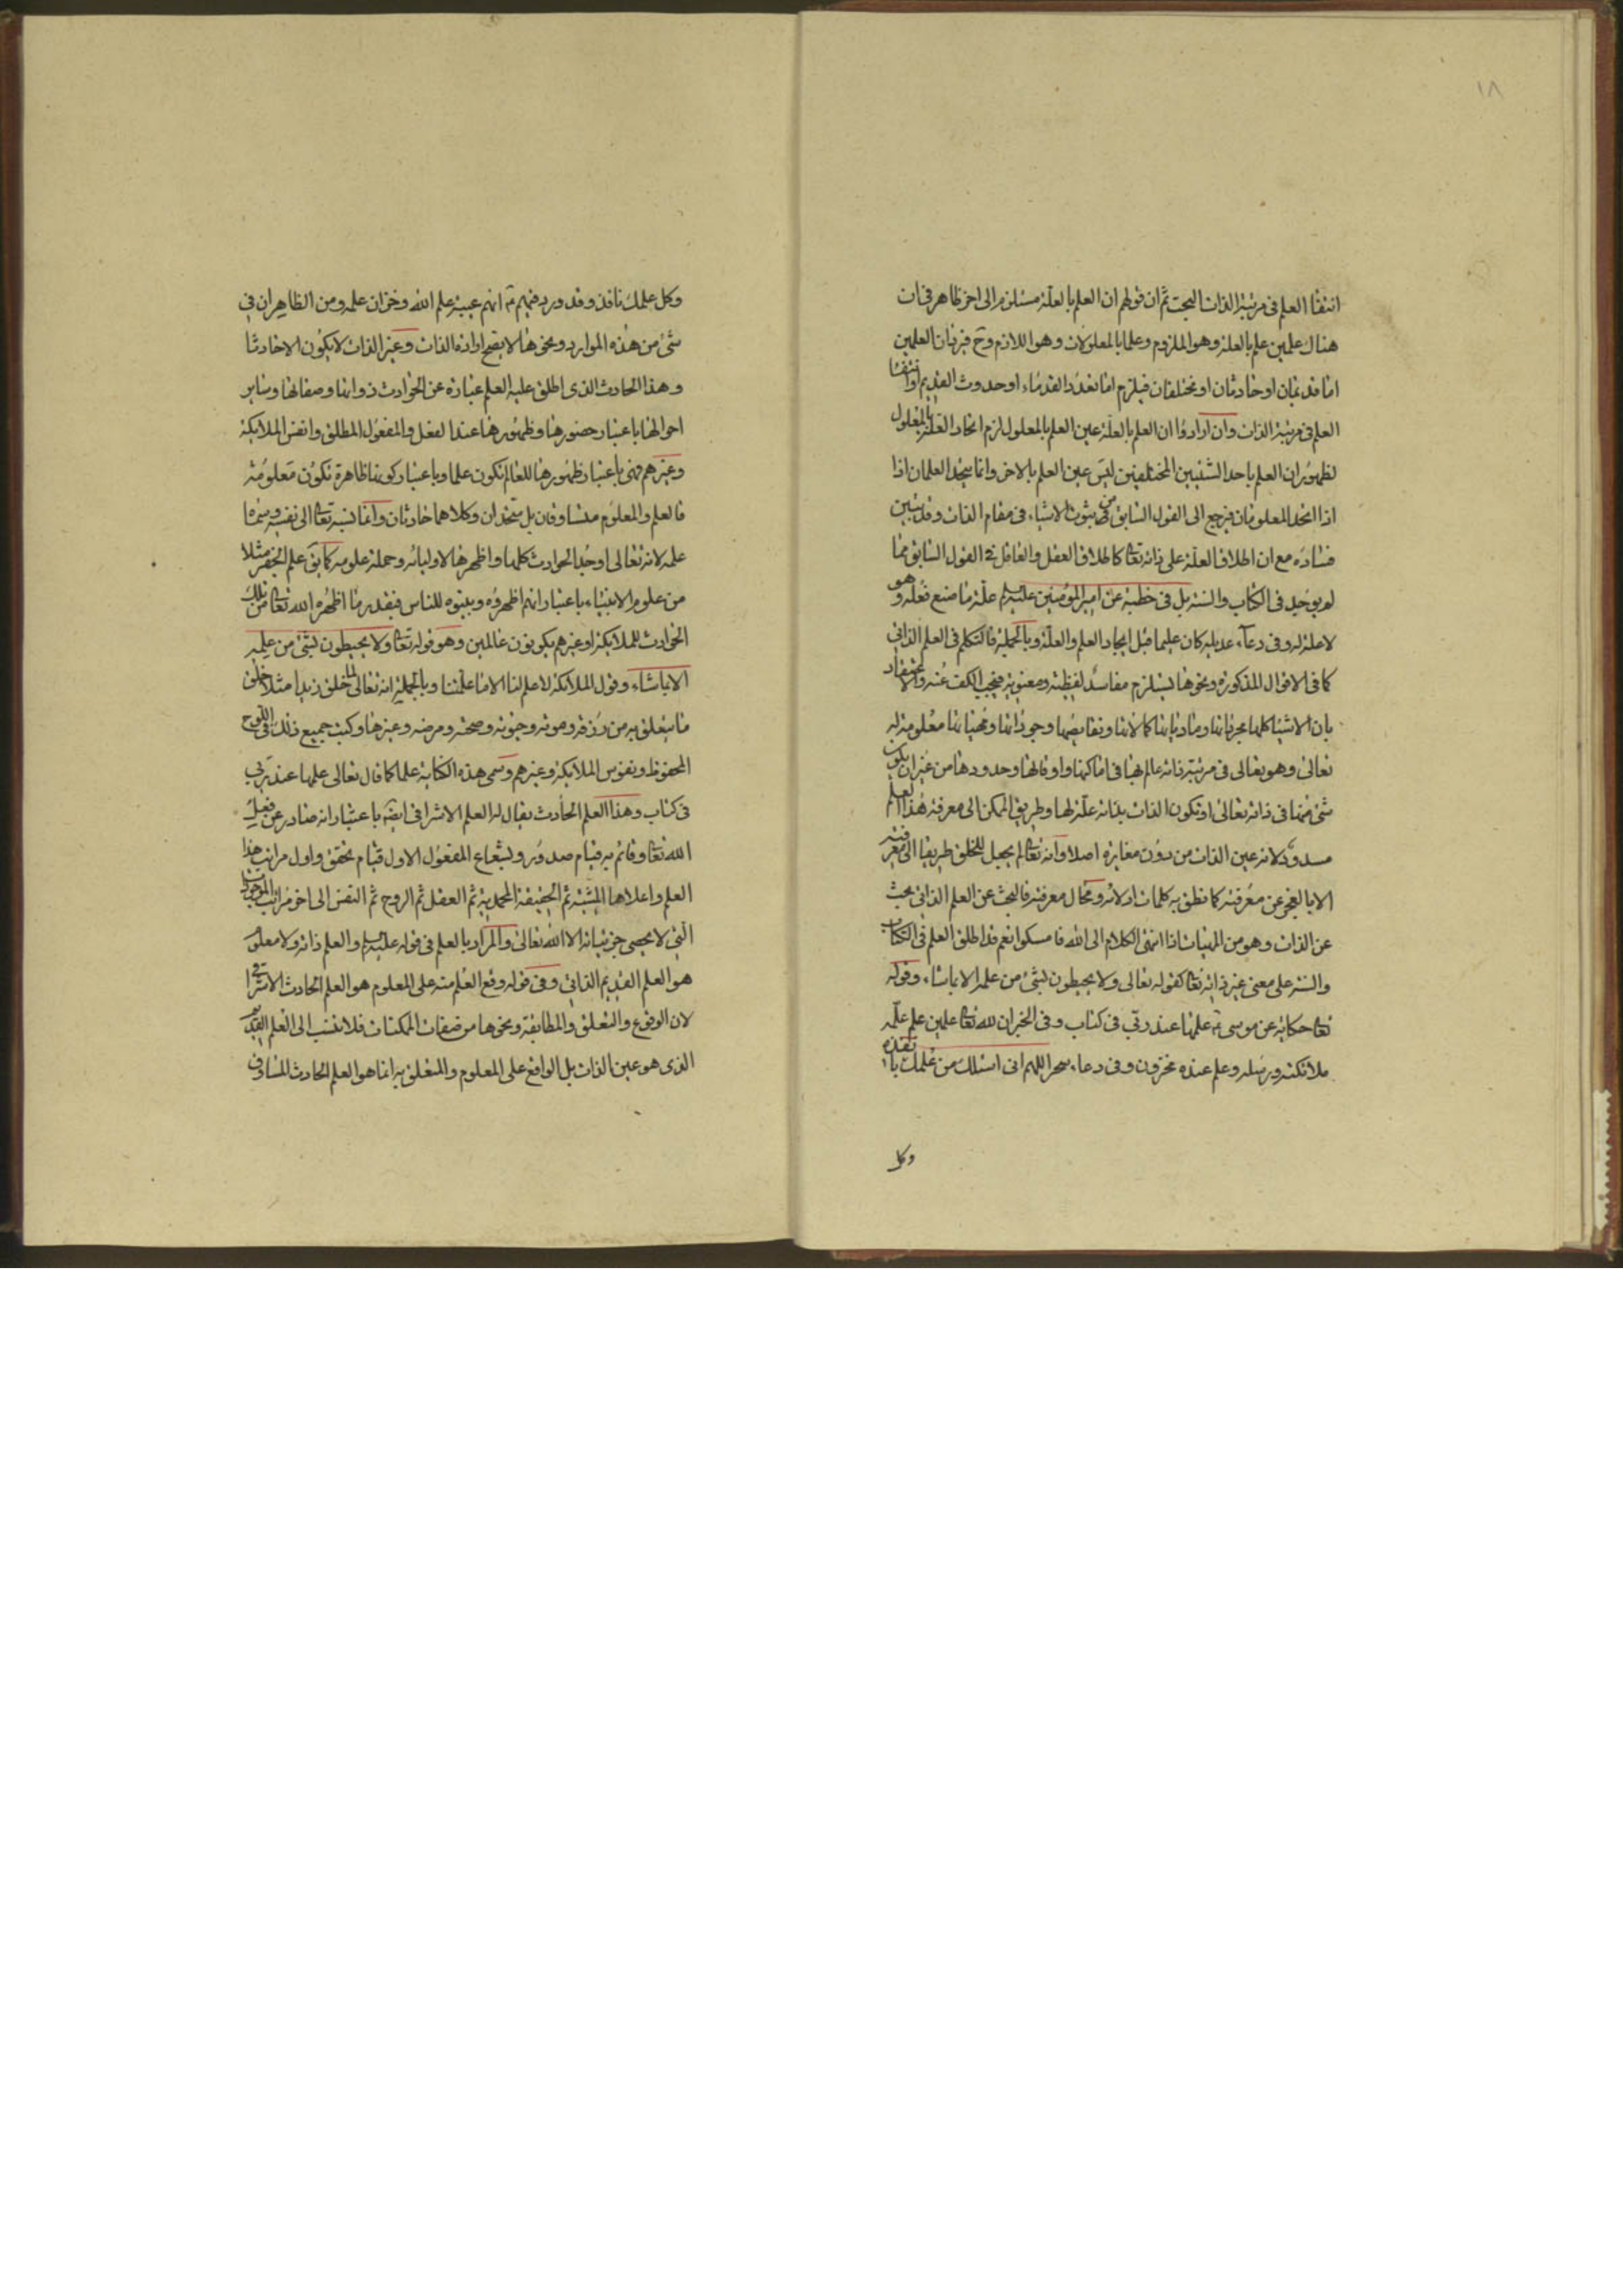 ١٨
انتفاء العلم فى مرتبة الذات البحت ثم ان قولهم ان العلم بالعلة مستلزم الى اخر ظاهر فى ان
هناك علمين علم بالعلة وهو الملزوم وعلما بالمعلولات وهو اللازم وح فهذان العلمين
اما قديمان او حادثان او مختلفان فيلزم اما تعدد القدماء او حدوث القديم او انتفاء
العلم فى مرتبة الذات وان ارادوا ان العلم بالعلة عين العلم بالمعلول لزم اتحاد العلة بالمعلول
لظهور ان العلم باحد الشيئين المختلفين ليس عين العلم بالاخر وانما يتحد العلمان اذا
اذا اتحد المعلومان فيرجع الى القول السابق من ثبوت الاشياء فى مقام الذات وقد تبين
فساده مع ان اطلاق العلة على ذاته تعالى كاطلاق العقل والعاقل فى القول السابق مما
لم يوجد فى الكتاب والسنة بل فى خطبة عن امير المؤمنين عليه السلام علة ما صنع فعله وهو
لا علة له وفى دعاء عديلة كان عليما قبل ايجاد العلم والعلة وبالجملة فالتكلم فى العلم الذاتى
كما فى الاقوال المذكورة ونحوها يستلزم مفاسد لفظية ومعنوية فيجب الكف عنه والاعتقاد
بان الاشيا كلها مجرداتها ومادياتها كمالاتها ونقايصها وجوداتها ومهياتها معلومة له
تعالى وهو تعالى فى مرتبة ذاته عالم بها فى اماكنها واوقاتها وحدودها من غير ان يكون
شئ منها فى ذاته تعالى او تكون الذات بذاته علة لها وطريق الممكن الى معرفة هذا العلم
مسدود لانه عين الذات من دون مغايرة اصلا وانه تعالى لم يجعل للخلق طريقا الى معرفته
الا بالعجز عن معرفته كما نطق به كلمات ادلائه ومحال معرفته فالبحث عن العلم الذاتى بحث
عن الذات وهو من المهيات اذا انتهى الكلام الى الله فامسكوا نعم قد اطلق العلم فى الكتاب
والسنة على معنى غير ذاته تعالى كقوله تعالى ولا يحيطون بشئ من علمه الا بما شاء وقوله
تعالى حكاية عن موسى ع علمها عند ربى فى كتاب وفى الخبر ان لله تعالى علمين علم علمه
ملائكته ورسله وعلم عنده مخزون وفى دعاء سحر اللهم انى اسئلك من علمك بانفذه
وكل
وكل علمك نافذ وقد ورد فيهم ع انهم عيبة علم الله وخزان علمه ومن الظاهر ان فى
شئ من هذه الموارد ونحوها لا يصح ارادة الذات وغير الذات لا يكون الا حادثا
وهذا الحادث الذى اطلق عليه العلم عبارة عن الحوادث ذواتها وصفاتها وساير
احوالها باعتبار حضورها وظهورها عند الفعل والمفعول المطلق وانفس الملائكة
وغيرهم فهى باعتبار ظهورها للعالم تكون علما وباعتبار كونها ظاهرة تكون معلومة
فالعلم والمعلوم متساوقان بل متحدان وكلاهما حادثان وانما نسبه تعالى الى نفسه وسماه
علمه لانه تعالى اوجد الحوادث كلها واظهرها لاوليائه وحملة علومه كما يق علم الجفر مثلا
من علوم الانبياء باعتبار انهم اظهروه وبينوه للناس فبقدر ما اظهره الله تعالى من تلك
الحوادث للملائكة او غيرهم يكونون عالمين وهو قوله تعالى ولا يحيطون بشئ من علمه
الا بما شاء وقول الملائكة لا علم لنا الا ما علمتنا وبالجملة انه تعالى لما خلق زيدا مثلا خلق
ما يتعلق به من رزقه وموته وحيوته وصحته ومرضه وغيرها وكتب جميع ذلك فى اللوح
المحفوظ ونفوس الملائكة وغيرهم وسمى هذه الكتابة علما كما قال تعالى علمها عند ربى
فى كتاب وهذا العلم الحادث يقال له العلم الاشراقى ايضا باعتبار انه صادر عن فعل
الله تعالى وقائم به قيام صدور وبشعاع المفعول الاول قيام تحقق واول مراتب هذا
العلم واعلاها المشية ثم الحقيقة المحمدية ثم العقل ثم الروح ثم النفس الى اخر مراتب الموجودات
التى لا يحصى جزئياته الا الله تعالى والمراد بالعلم فى قوله عليه السلام والعلم ذاته ولا معلوم
هو العلم القديم الذاتى وفى قوله وقع العلم منه على المعلوم هو العلم الحادث الاشراقى
لان الوقوع والتعلق والمطابقة ونحوها من صفات الممكنات فلا تنسب الى العلم القديم
الذى هو عين الذات بل الواقع على المعلوم والمتعلق به انما هو العلم الحادث المساوق